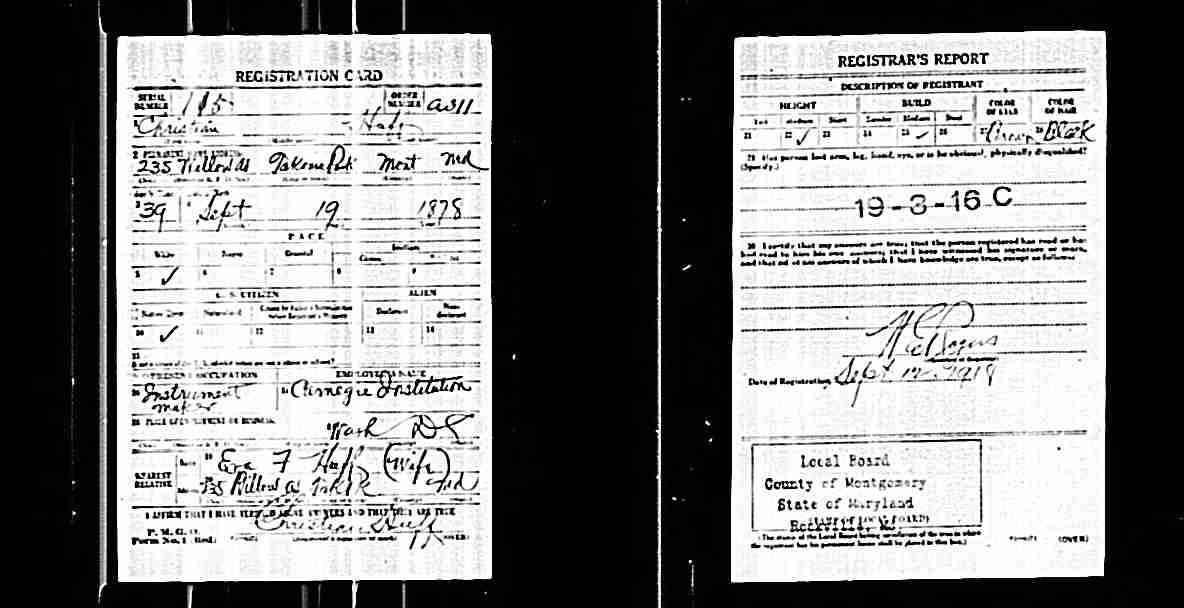 REGISTRATION CARD
SERIAL NUMBER 115 ORDER NUMBER A311
Christian Huff
235 Willow av Takoma Park Mont Md
39 Sept 19 1878
RACE
White
5 ✓ 6 7 8 9
U. S. CITIZEN ALIEN
10 ✓ 11 12 13 14
15
PRESENT OCCUPATION EMPLOYER'S NAME
Instrument maker Carnegie Institution
Wash D C
NEAREST RELATIVE Name 19 Eva F Huff (Wife)
235 Willow av Tak Pk Md
I AFFIRM THAT I HAVE VERIFIED ABOVE ANSWERS AND THAT THEY ARE TRUE
P. M. G. O.
Form No. 1 (Red) Christian Huff (OVER)
REGISTRAR'S REPORT
DESCRIPTION OF REGISTRANT
HEIGHT BUILD COLOR OF EYES COLOR OF HAIR
Tall Medium Short Slender Medium Stout
21 22 ✓ 23 24 25 ✓ 26 27 Brown 28 Black
29 Has person lost arm, leg, hand, eye, or is he obviously physically disqualified?
(Specify.)
19-3-16 C
30 I certify that my answers are true; that the person registered has read or has
had read to him his own answers; that I have witnessed his signature or mark,
and that all of his answers of which I have knowledge are true, except as follows:
Date of Registration Sept 12 1918
Local Board
County of Montgomery
State of Maryland
Rockville, Md
(STAMP OF LOCAL BOARD)
(The stamp of the Local Board having jurisdiction of the area in which
the registrant has his permanent home shall be placed in this box.)
(OVER)